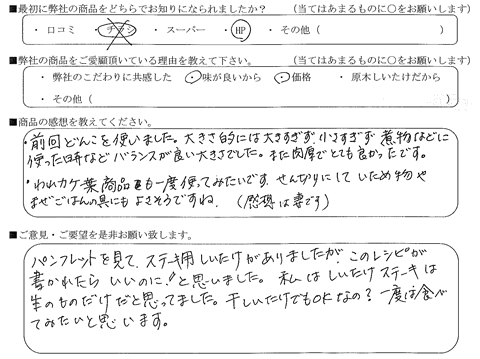 ■最初に弊社の商品をどちらでお知りになられましたか？　（当てはあまるものに〇をお願いします）
・口コミ　・チラシ　・スーパー　・HP　・その他（　　　　　）
■弊社の商品をご愛顧頂いている理由を教えて下さい。　（当てはあまるものに〇をお願いします）
・弊社のこだわりに共感した　・味が良いから　・価格　・原木しいたけだから
・その他（　　　　　）
■商品の感想を教えてください。
・前回どんこを使いました。大きさ的には大きすぎず、小さすぎず 煮物などに
使った時などバランスが良い大きさでした。また肉厚でとても良かったです。
・われカケ葉商品も一度使ってみたいです。せん切りにしていため物や
まぜごはんの具にもよさそうですね。（感想は妻です）
■ご意見・ご要望を是非お願い致します。
パンフレットを見て、ステーキ用しいたけがありましたが、このレシピが
書かれたらいいのに!!と思いました。私はしいたけステーキは
生のものだけだと思ってました。干しいたけでもOKなの？一度は食べ
てみたいと思います。